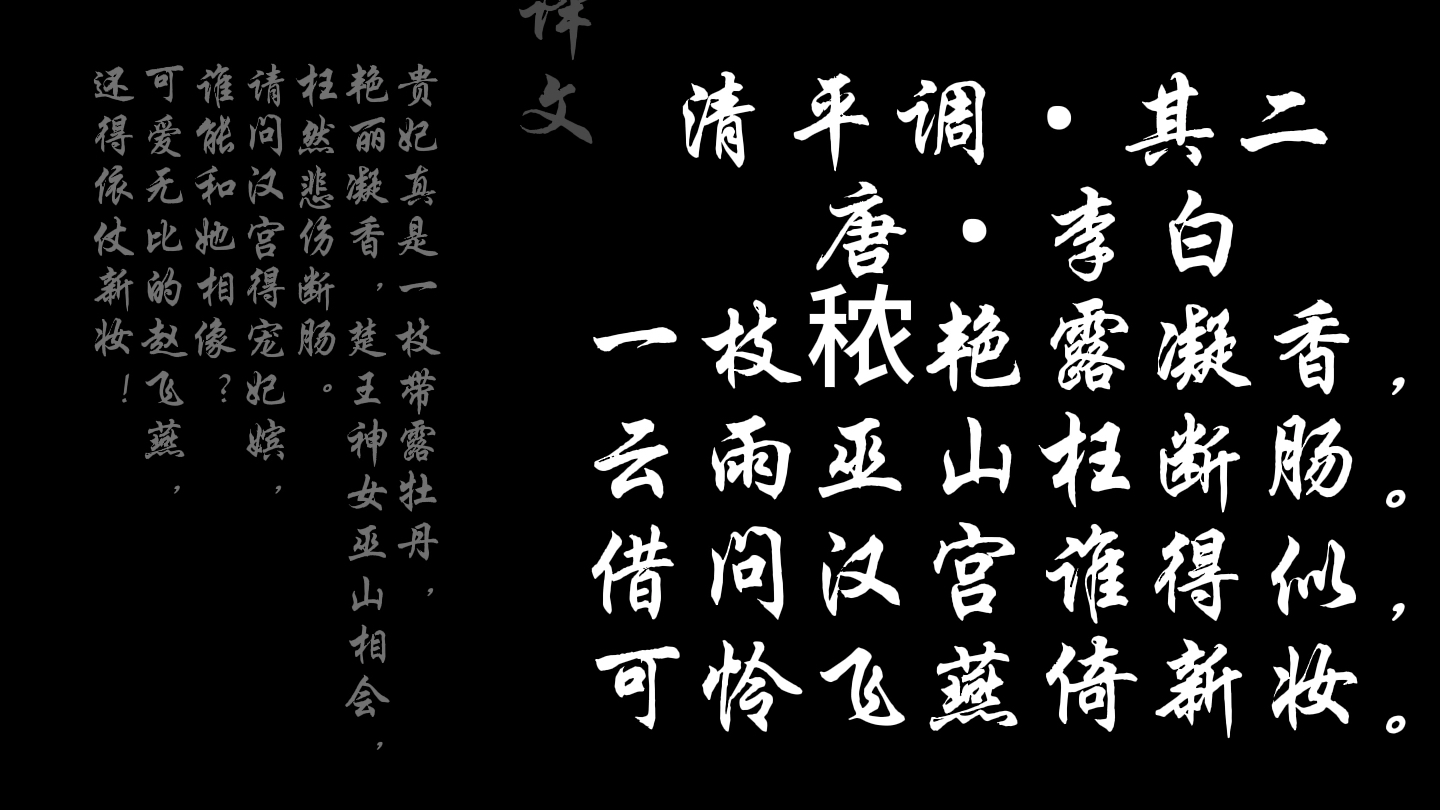 清平调·其二
唐·李白
一枝秾艳露凝香，
云雨巫山枉断肠。
借问汉宫谁得似，
可怜飞燕倚新妆。
译文
贵妃真是一枝带露牡丹，
艳丽凝香，楚王神女巫山相会，
枉然悲伤断肠。
请问汉宫得宠妃嫔，
谁能和她相像？
可爱无比的赵飞燕，
还得依仗新妆！